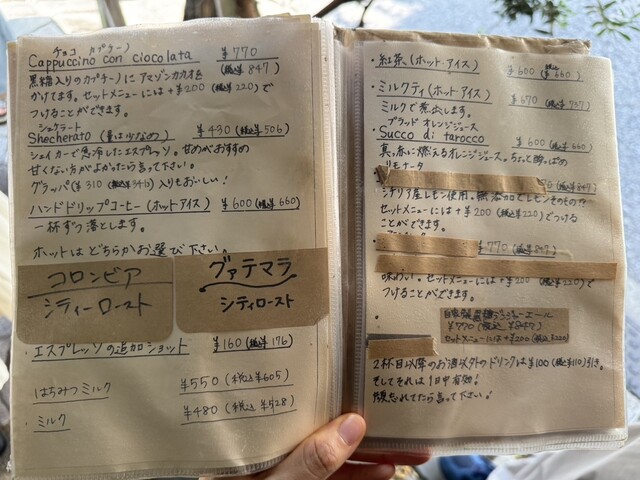 チョコ カプチーノ
Cappuccino con ciocolata ¥770 (税込¥847)
黒糖入りのカプチーノにアマゾンカカオを
かけてます。セットメニューには+¥200(税込¥220)で
つけることができます。
シェケラート
Shecherato (量は少なめ) ¥430(税込¥506)
シェイカーで急冷したエスプレッソ。甘めがおすすめ
甘くない方がよかったら言って下さい。
グラッパ(¥310 (税込¥341))入りもおいしい!
ハンドドリップコーヒー(ホットアイス) ¥600(税込¥660)
一杯ずつ落とします。
ホットはどちらかお選び下さい。
コロンビア
シティーロースト
グァテマラ
シティロースト
・エスプレッソの追加ショット ¥160(税込¥176)
・はちみつミルク ¥550 (税込¥605)
・ミルク ¥480 (税込¥528)
・紅茶(ホット・アイス) ¥600 (税込¥660)
・ミルクティ(ホット・アイス) ¥670 (税込¥737)
ミルクで煮出します。
ブラッドオレンジジュース
・Succo di tarocco ¥600(税込¥660)
真っ赤に燃えるオレンジジュース。ちょっと酸っぱめ
リモナータ
シチリア産レモン使用。無添加でレモンそのもの?
セットメニューには+¥200 (税込¥220)でつける
ことができます。
¥770
味わい。セットメニューには+¥200(税込¥220)で
つけることができます。
自家製ジンジャーエール
¥770(税込¥847)
セットメニューには+¥200(税込¥220)
2杯目以降のお酒以外のドリンクは¥100(税込¥110)引き。
そしてそれは1日中有効!